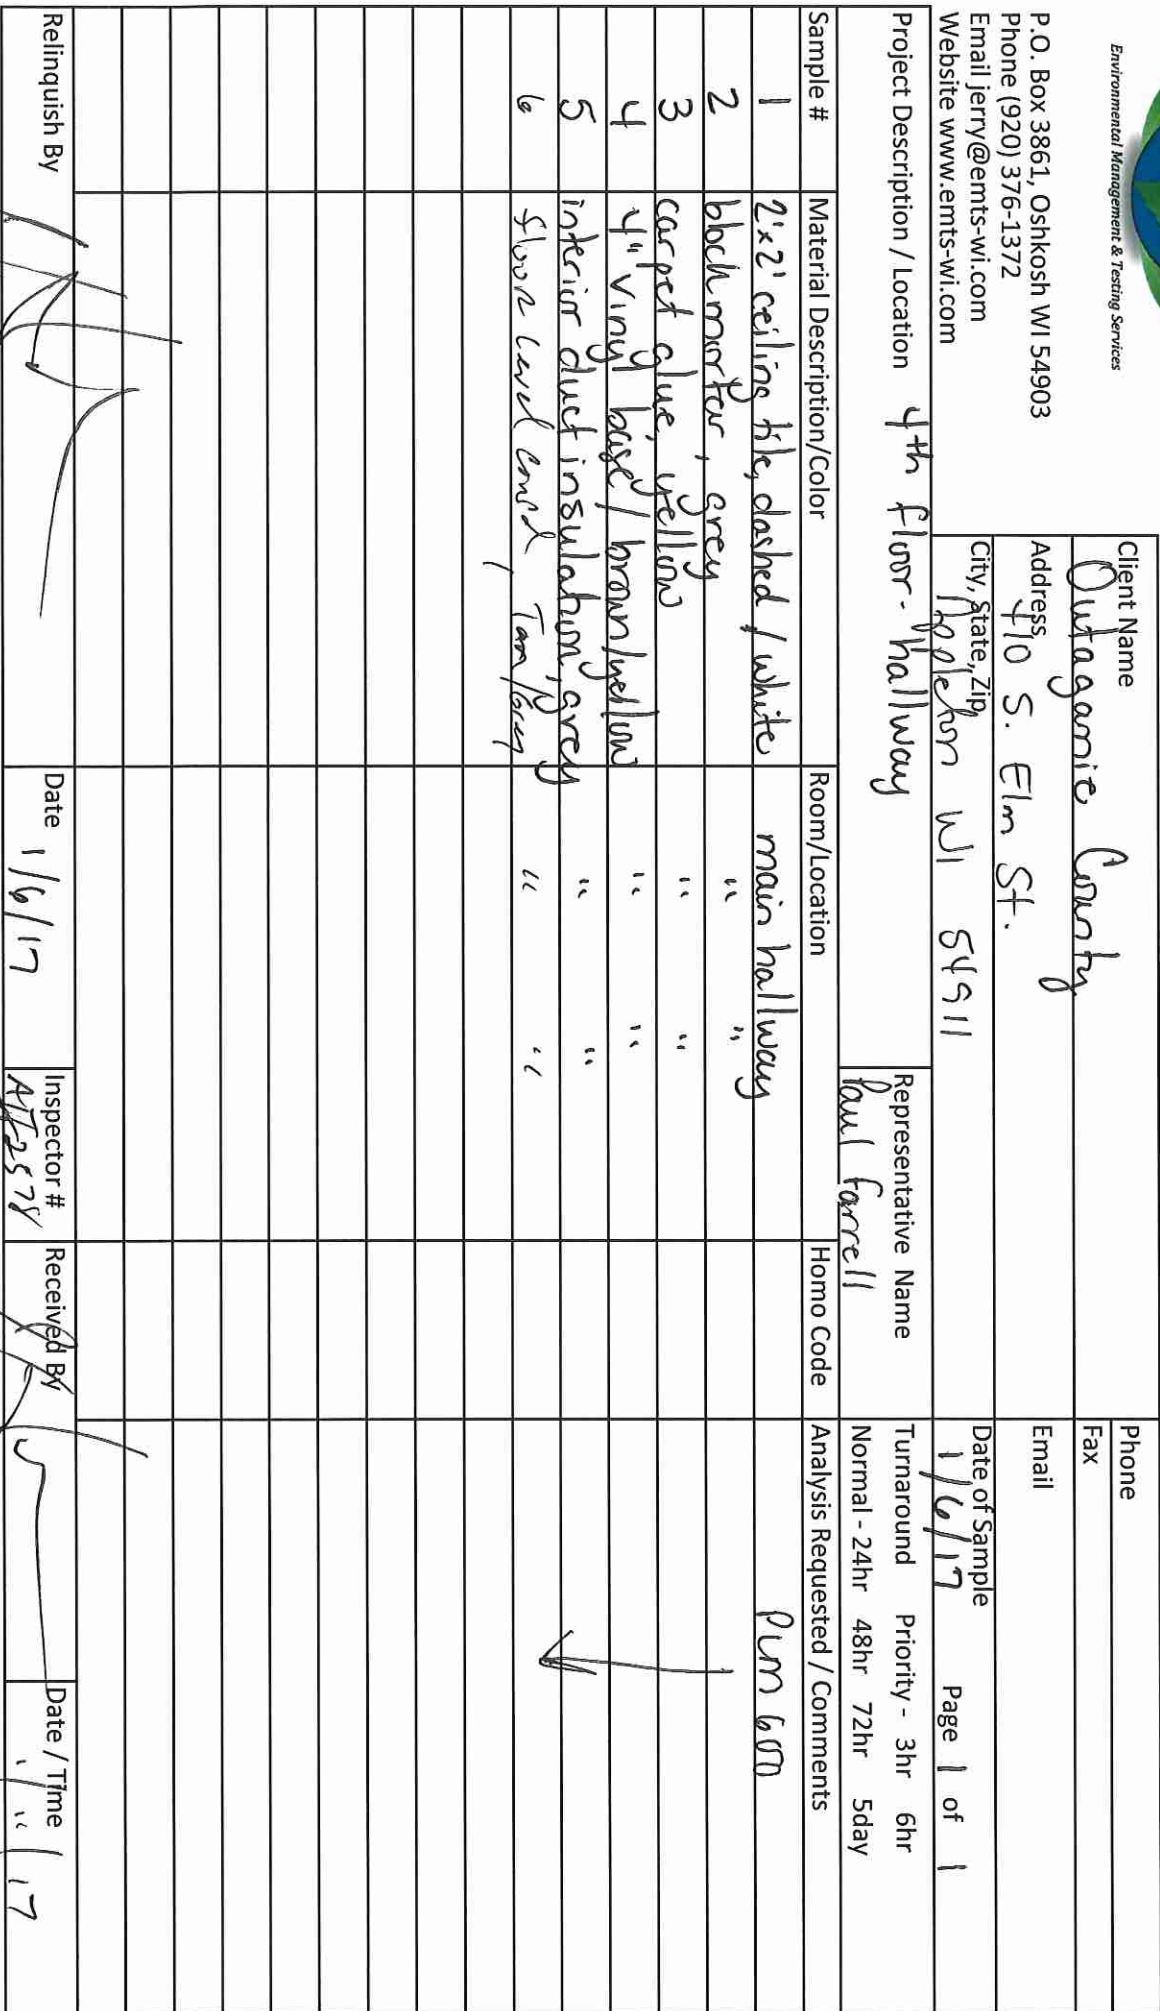 Environmental Management & Testing Services
P.O. Box 3861, Oshkosh WI 54903
Phone (920) 376-1372
Email jerry@emts-wi.com
Website www.emts-wi.com
Client Name
Outagamie County
Address
410 S. Elm St.
City, State, Zip
Appleton WI 54911
Phone
Fax
Email
Date of Sample
1/6/17
Page 1 of 1
Project Description / Location 4th floor - hallway
Representative Name
Paul Farrell
Turnaround Priority - 3hr 6hr
Normal - 24hr 48hr 72hr 5day
Sample # Material Description/Color Room/Location Homo Code Analysis Requested / Comments
1 2'x2' ceiling tile, dashed / white main hallway PLM 600
2 block mortar, grey " "
3 carpet glue, yellow " "
4 4" vinyl base / brown/yellow " "
5 interior duct insulation, grey " "
6 floor level " "
Relinquish By
Date 1/6/17
Inspector #
AII-2578
Received By
Date / Time